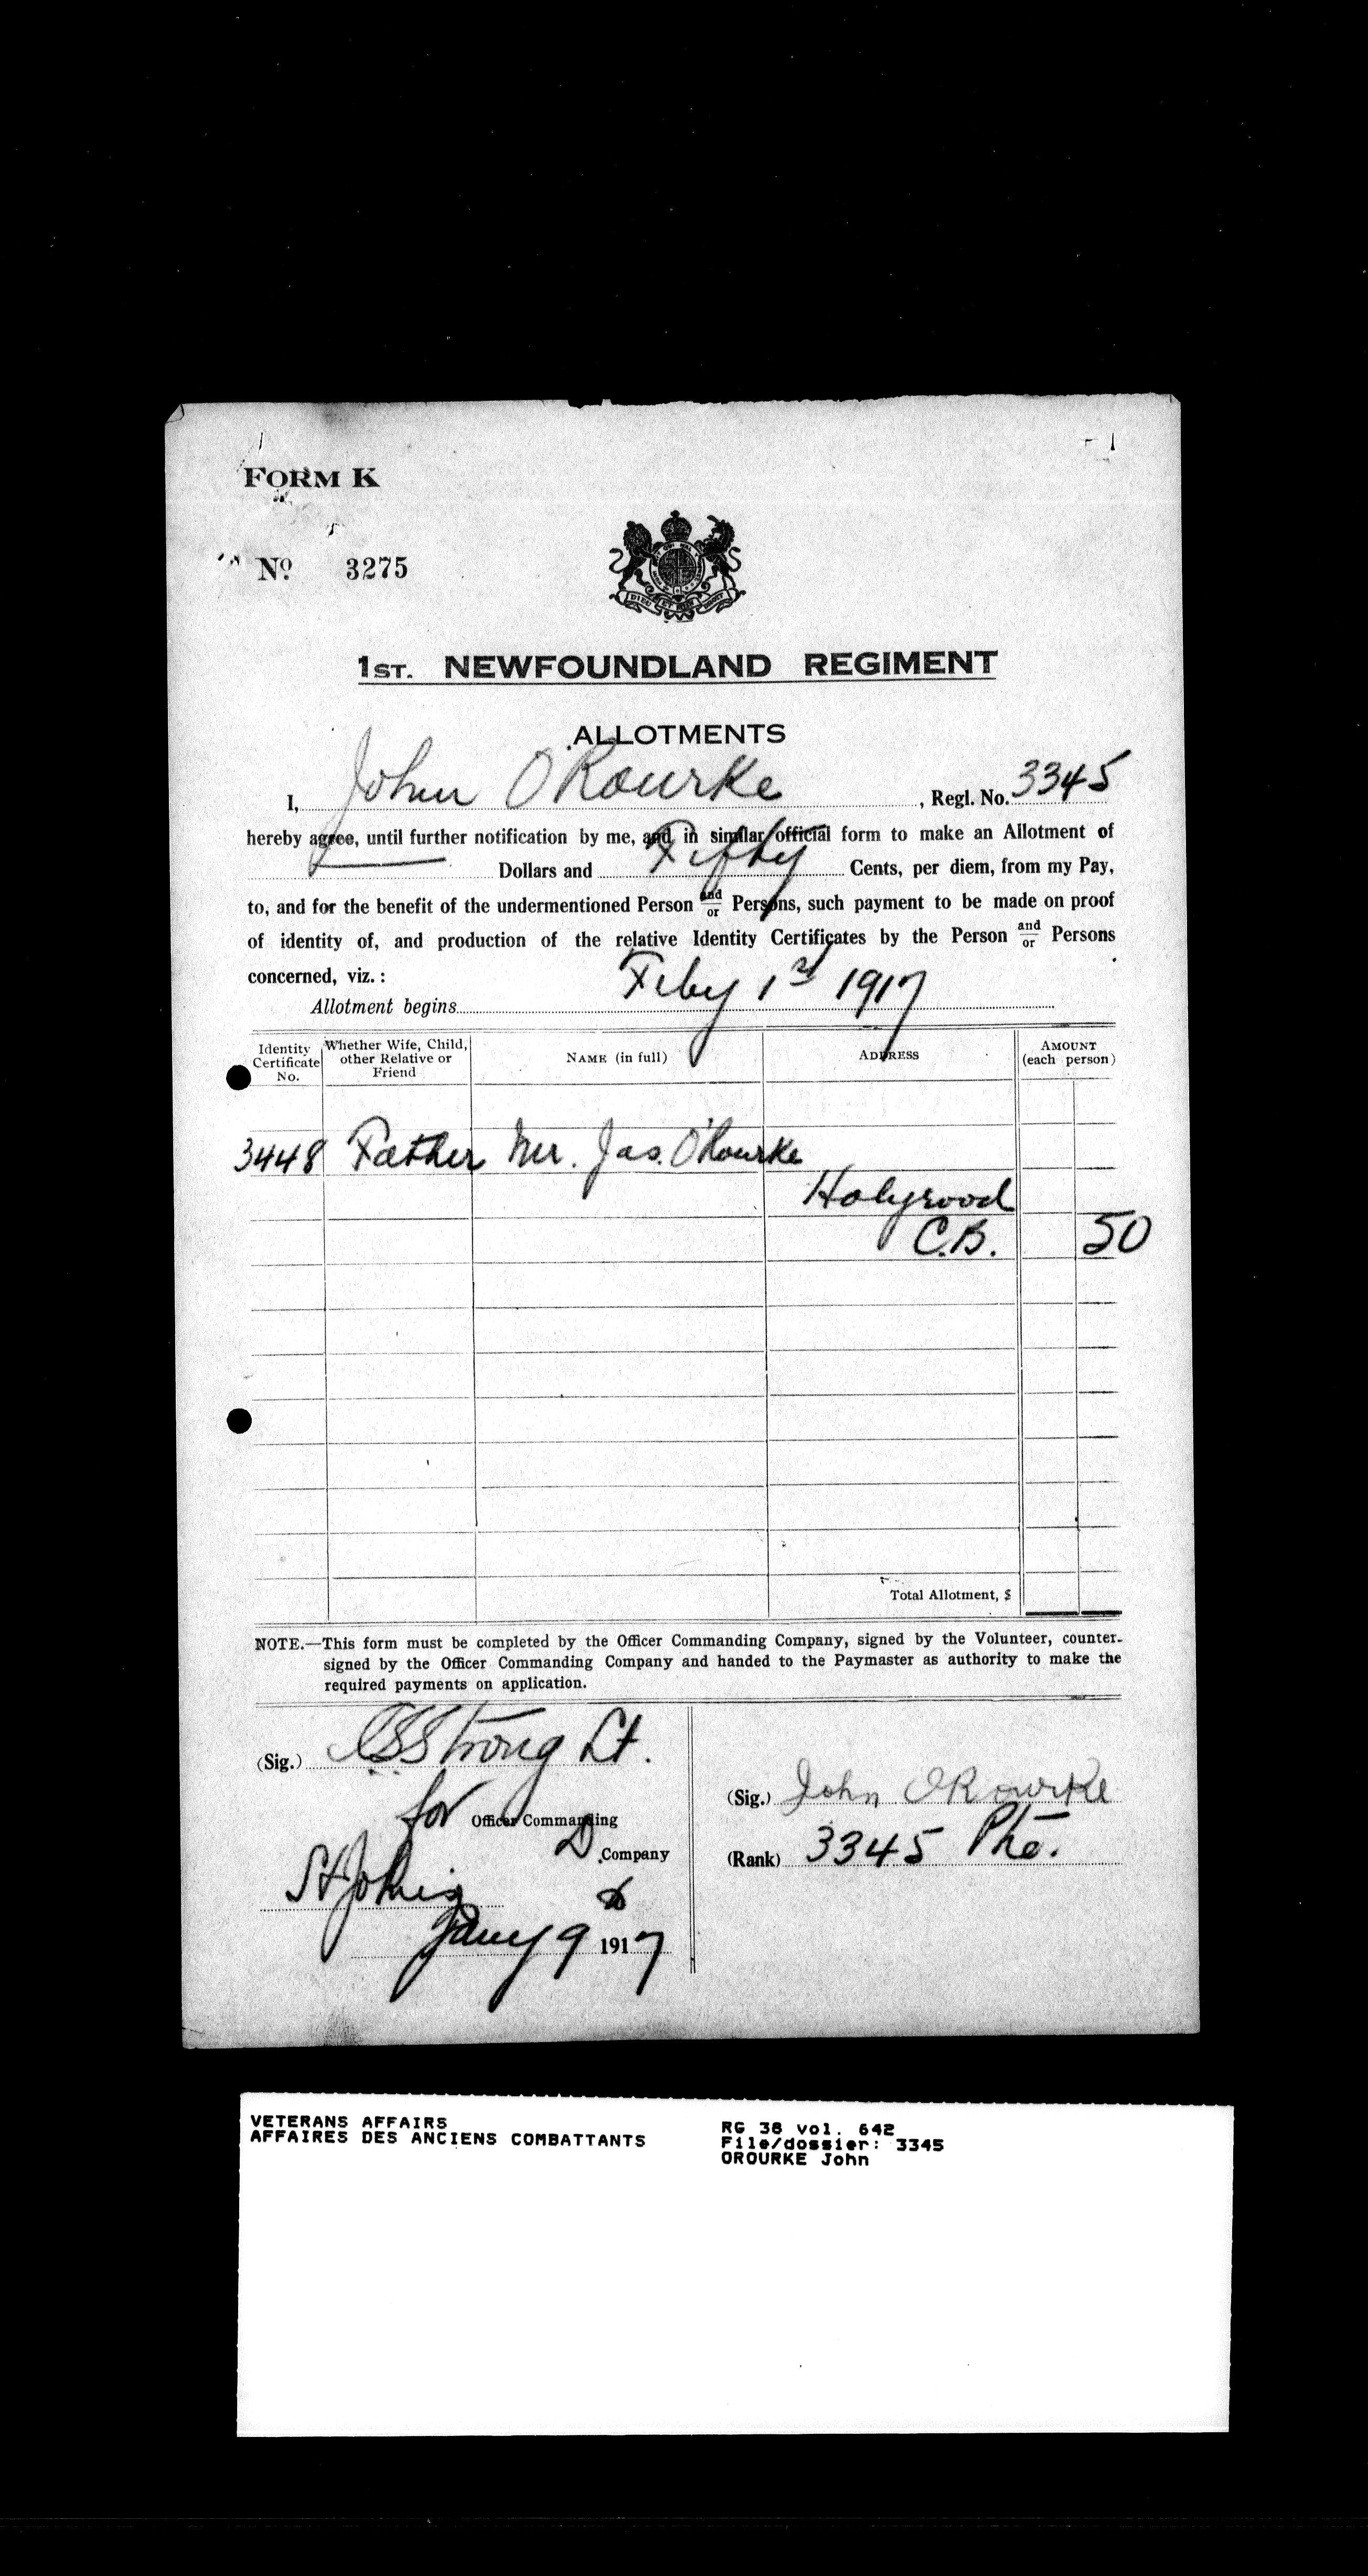 FORM K
No. 3275
DIEU ET MON DROIT
1ST. NEWFOUNDLAND REGIMENT
ALLOTMENTS
I, John O Rourke, Regl. No. 3345
hereby agree, until further notification by me, and in similar official form to make an Allotment of
Dollars and Fifty Cents, per diem, from my Pay,
to, and for the benefit of the undermentioned Person and/or Persons, such payment to be made on proof
of identity of, and production of the relative Identity Certificates by the Person and/or Persons
concerned, viz. :
Allotment begins Feby 1st 1917
Identity Certificate No. Whether Wife, Child, other Relative or Friend NAME (in full) ADDRESS AMOUNT (each person)
3448 Father Mr. Jas. O'Rourke
Holyrood
C.B. 50
Total Allotment, $
NOTE.—This form must be completed by the Officer Commanding Company, signed by the Volunteer, counter-
signed by the Officer Commanding Company and handed to the Paymaster as authority to make the
required payments on application.
(Sig.) Strong Lt.
for Officer Commanding
D Company
St Johns
Jany 9 1917
(Sig.) John O Rourke
(Rank) 3345 Pte.
VETERANS AFFAIRS
AFFAIRES DES ANCIENS COMBATTANTS
RG 38 vol. 642
File/dossier: 3345
OROURKE John